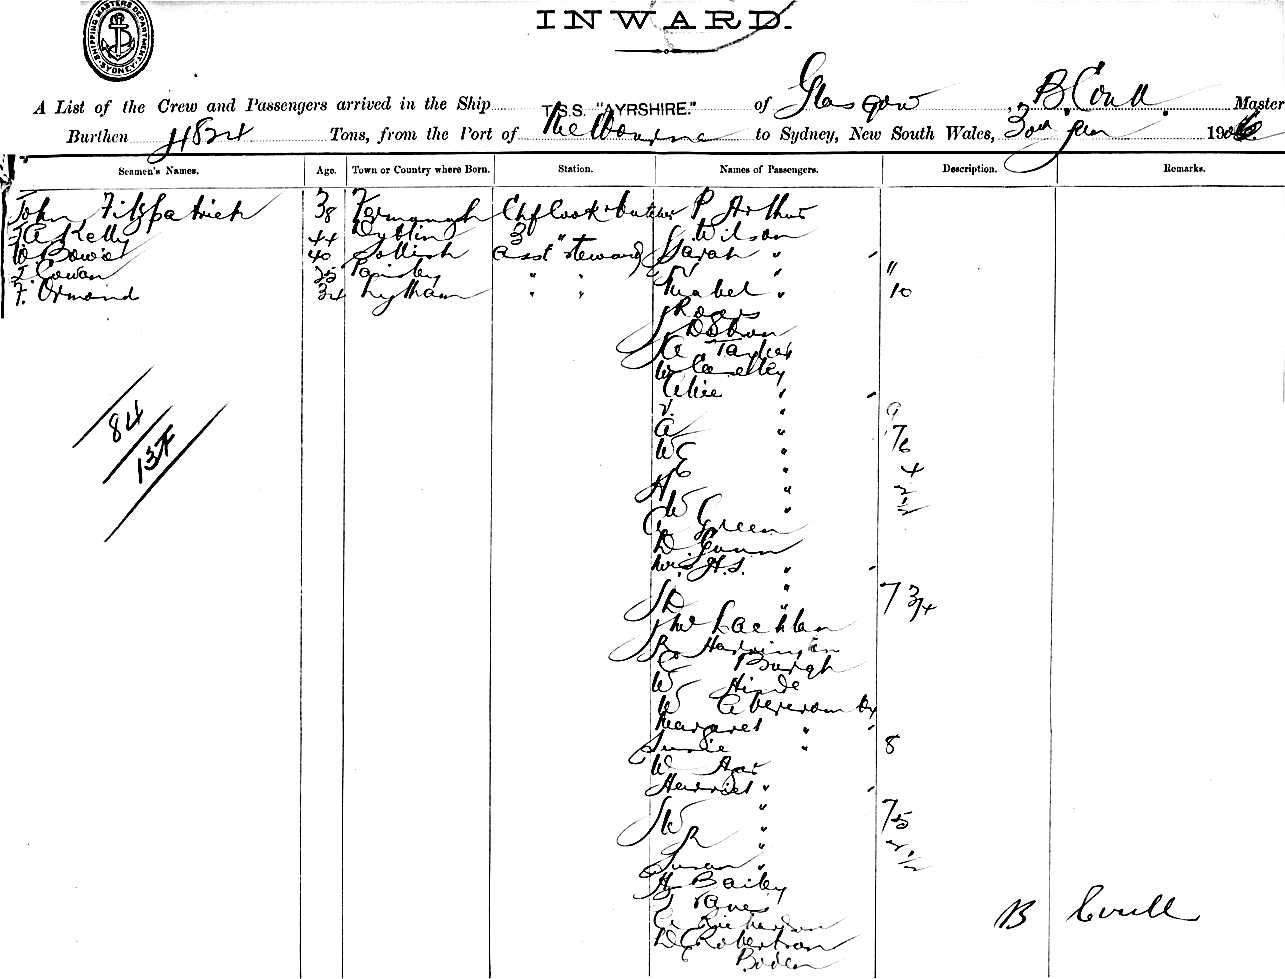 SHIPPING MASTERS DEPARTMENT SYDNEY
INWARD.
A List of the Crew and Passengers arrived in the Ship T.S.S. "AYRSHIRE." of Glasgow, B. Coull. Master
Burthen 4824 Tons, from the Port of Melbourne to Sydney, New South Wales, 30th Jan 190
Seamen's Names. Age. Town or Country where Born. Station. Names of Passengers. Description. Remarks.
John Fitzpatrick 38 Fermanagh Chf Cook & butcher P Arthur
Kelly 44 Dublin 3 " J Wilson
W Bowie 40 Scottish asst steward Sarah " "
Cowan 25 Paisley " " "
F. Ormond 34 Lytham " " Mabel " 10
J Rogers
J Dobson
W Connelly
Alice " "
V. " 9
A " 7
WC " 6
H " 4
W "
Green
D Gunn
Mrs H.S. " "
" 7
JD " 3/4
J McLachlan
R Harrington
C Burgh
W Hinde
W Abercromby
Margaret " "
Susie " 8
W Agar
Harriet " "
" 7
JW " 5
R "
Susan "
84
137
H Bailey
J Jones
Richardson
DC Robertson
Boden
B Coull